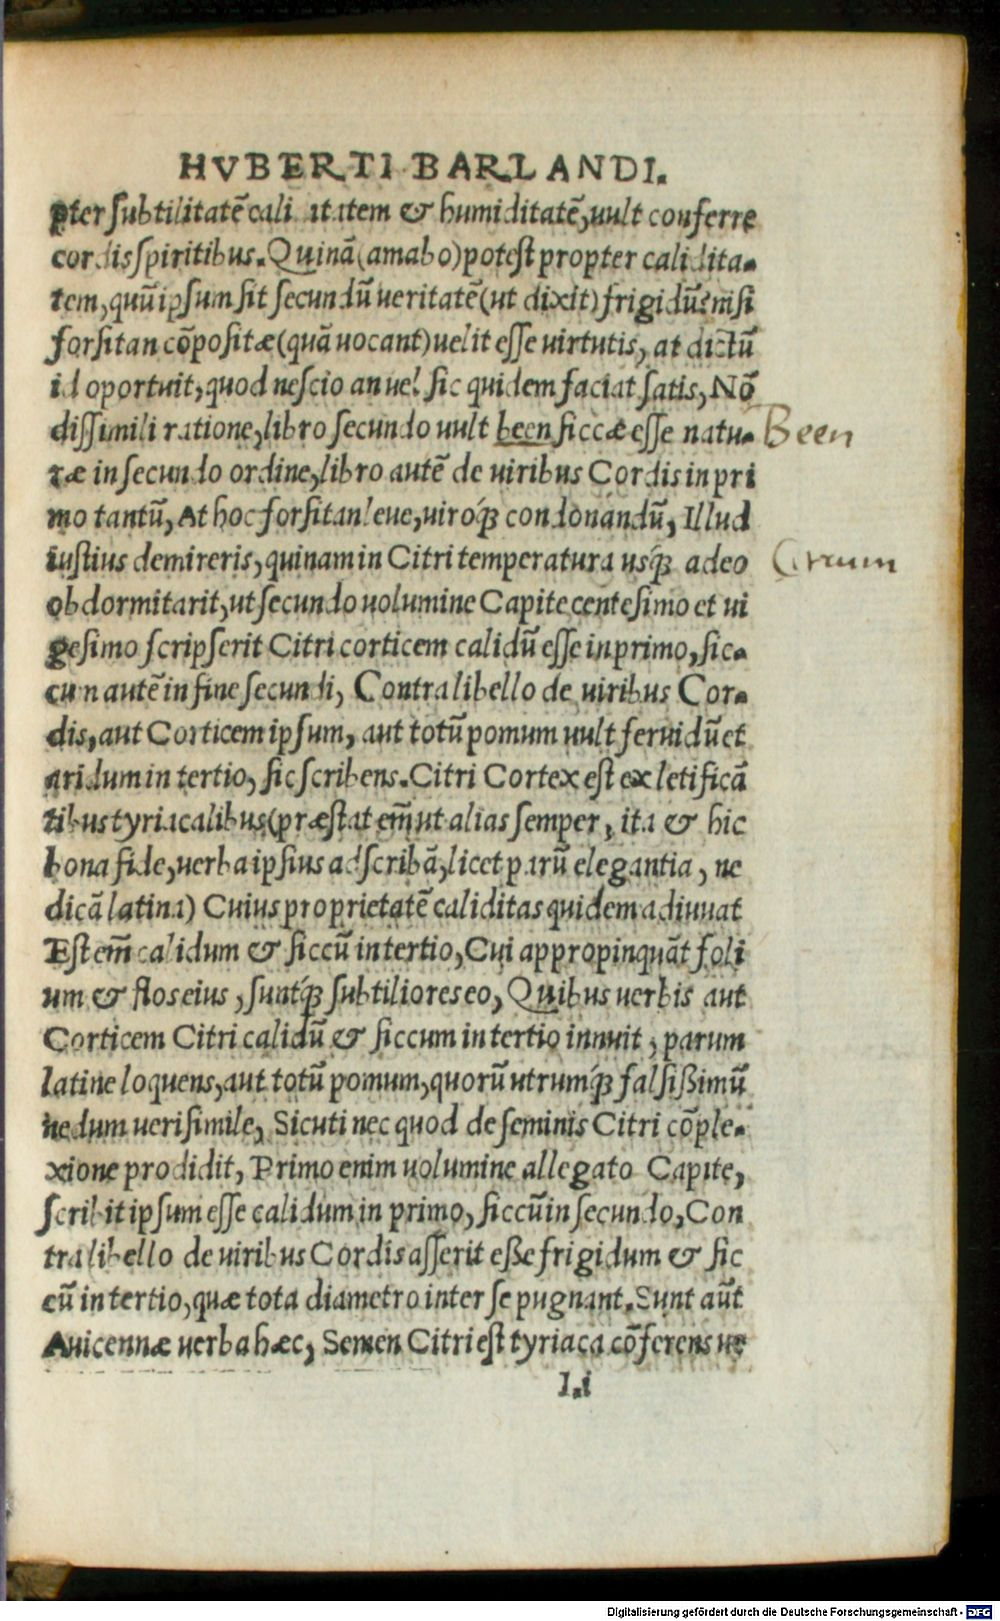 HVBERTI BARLANDI.
ꝓter subtilitatē caliditatem & humiditatē, uult conferre
cordis spiritibus. Quinā (amabo) potest propter calidita-
tem, quū ipsum sit secundū ueritatē (ut dixit) frigidū? nisi
forsitan cōpositæ (quā uocant) uelit esse uirtutis, at dictū
id oportuit, quod nescio an uel sic quidem faciat satis, Nō
dissimili ratione, libro secundo uult been siccæ esse natu-
ræ in secundo ordine, libro autē de uiribus Cordis in pri
mo tantū, At hoc forsitan leue, uiroq́ꝫ condonandū, Illud
iustius demireris, quinam in Citri temperatura usq́ꝫ adeo
obdormitarit, ut secundo uolumine Capite centesimo et ui
gesimo scripserit Citri corticem calidū esse in primo, sic-
cum autē in fine secundi, Contra libello de uiribus Cor-
dis, aut Corticem ipsum, aut totū pomum uult feruidū et
aridum in tertio, sic scribens. Citri Cortex est ex letificā
tibus tyriacalibus (præstat em̄ ut alias semper, ita & hic
bona fide, uerba ipsius adscribā, licet parū elegantia, ne
dicā latina) Cuius proprietatē caliditas quidem adiuuat
Est em̄ calidum & siccū in tertio, Cui appropinquāt foli
um & flos eius, suntq́ꝫ subtiliores eo, Quibus uerbis aut
Corticem Citri calidū & siccum in tertio innuit, parum
latine loquens, aut totū pomum, quorū utrumq́ꝫ falsißimū
nedum uerisimile, Sicuti nec quod de seminis Citri cōple-
xione prodidit, Primo enim uolumine allegato Capite,
scribit ipsum esse calidum in primo, siccū in secundo, Con
tra libello de uiribus Cordis asserit eße frigidum & sic
cū in tertio, quæ tota diametro inter se pugnant. Sunt aūt
Auicennæ uerba hæc, Semen Citri est tyriaca cōferens ue
I.i
Been
Citrum
Digitalisierung gefördert durch die Deutsche Forschungsgemeinschaft - DFG